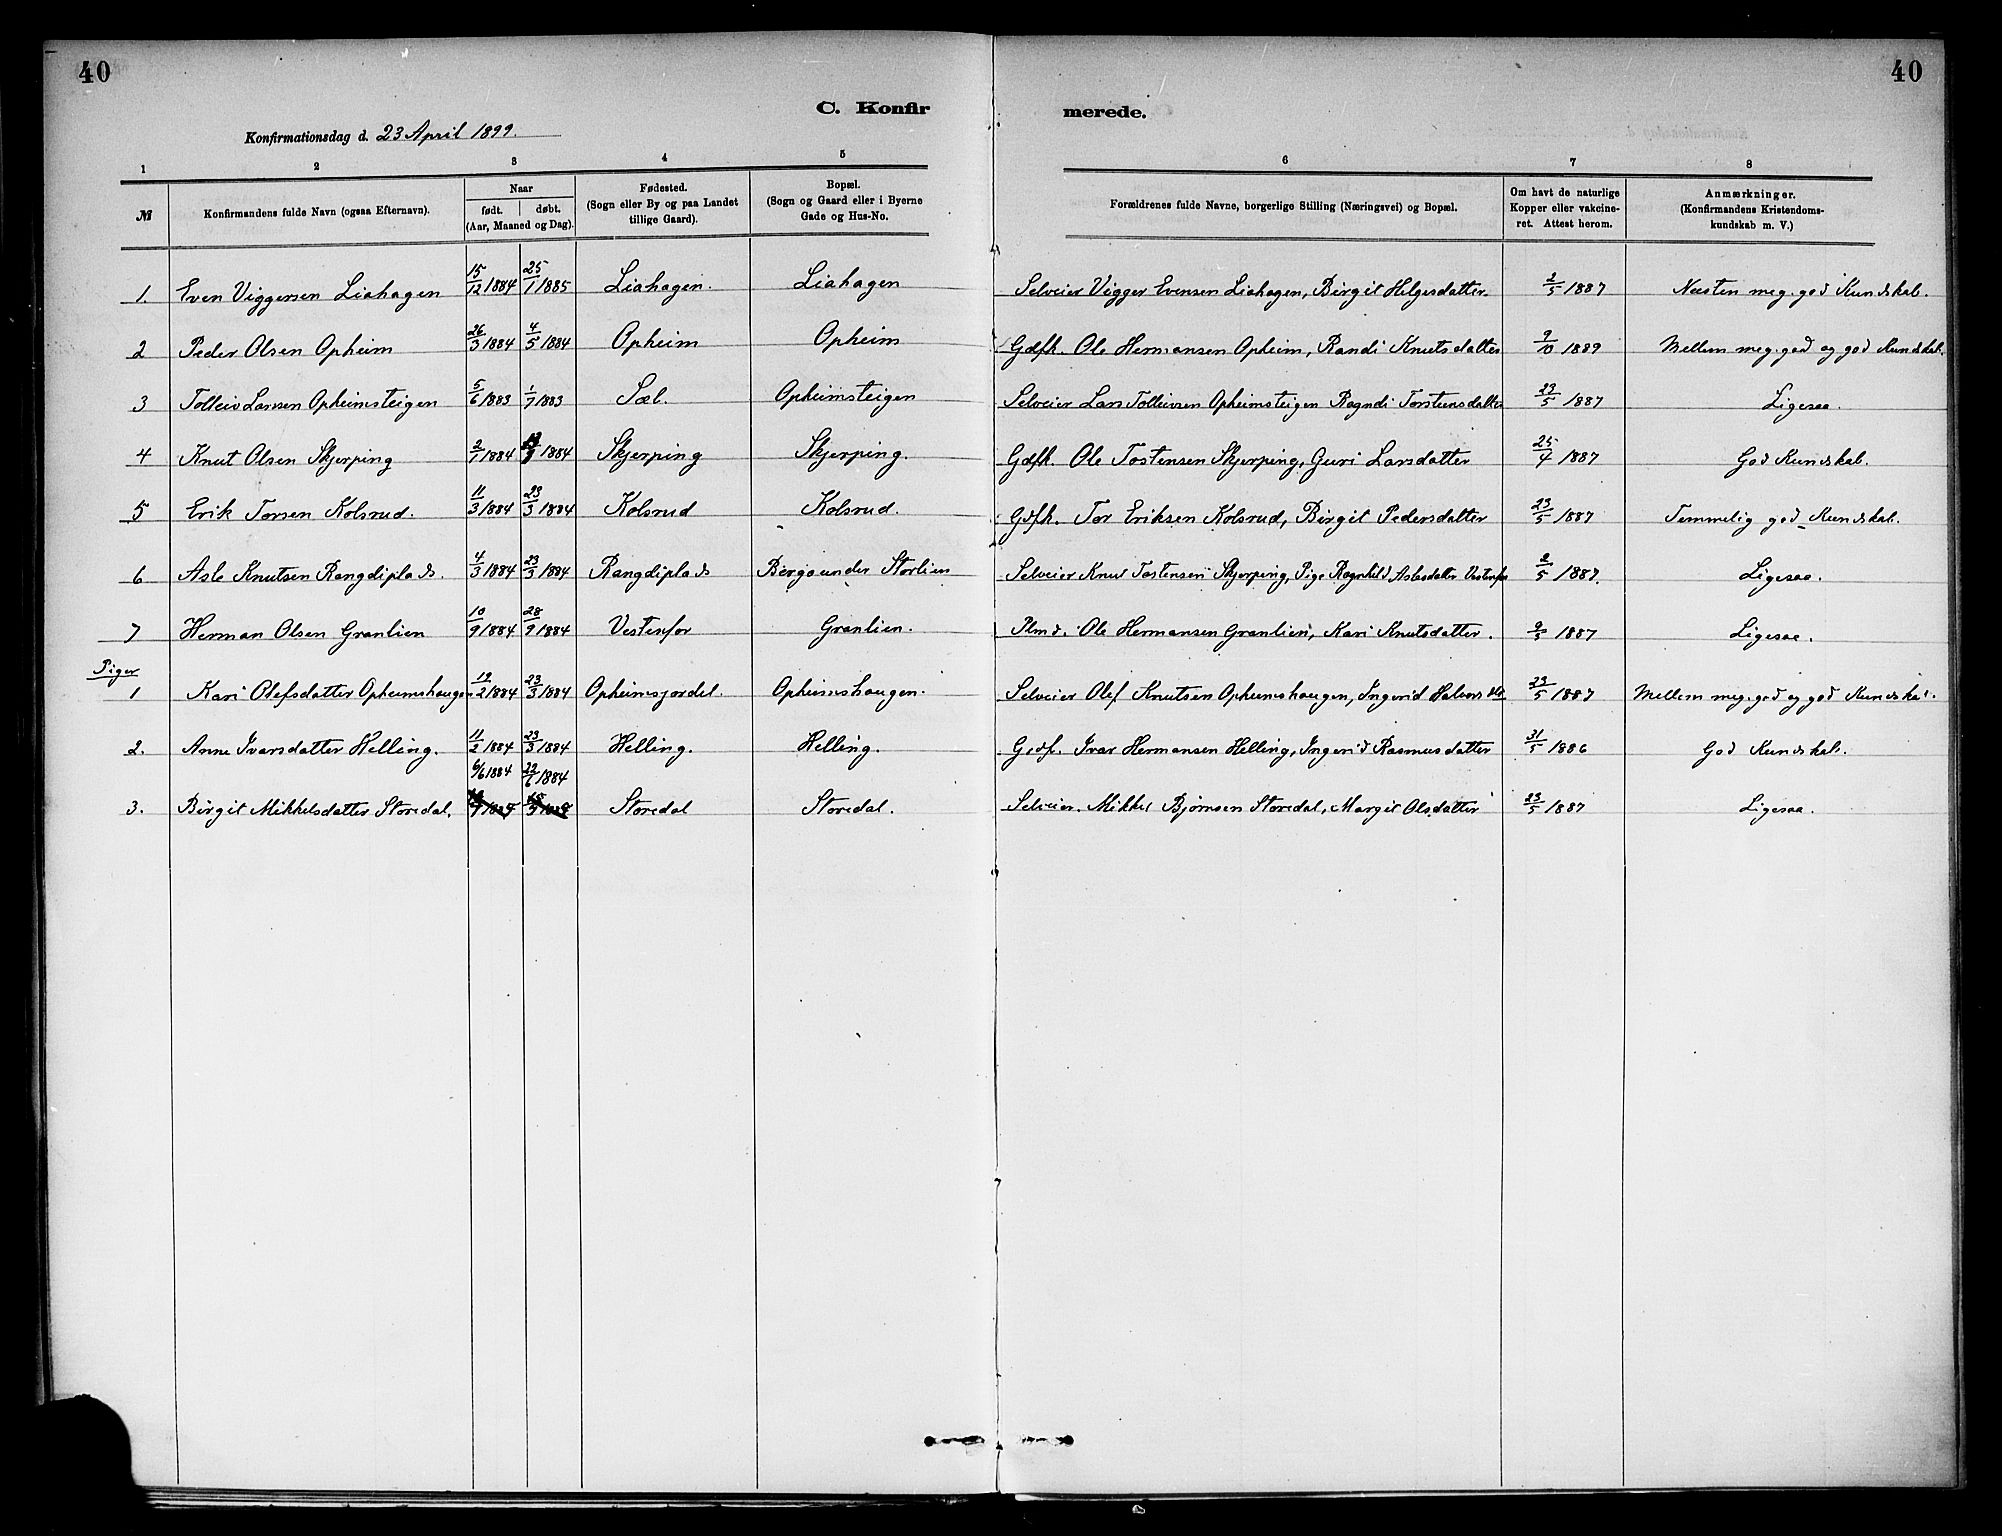 40
40
C. Konfirmerede.
Konfirmationsdag d. 23 April 1899.
1 2 3 4 5 6 7 8
№ | Konfirmandens fulde Navn (ogsaa Efternavn). | Naar født. døbt. (Aar, Maaned og Dag). | Fødested. (Sogn eller By og paa Landet tillige Gaard). | Bopæl. (Sogn og Gaard eller i Byerne Gade og Hus-No. | Forældrenes fulde Navne, borgerlige Stilling (Næringsvei) og Bopæl. | Om havt de naturlige Kopper eller vakcineret. Attest herom. | Anmærkninger. (Konfirmandens Kristendomskundskab m. V.)
1. Even Viggersen Liahagen 15/12 1884 25/1 1885 Liahagen. Liahagen Selveier Vigger Evensen Liahagen, Birgit Helgesdatter. 2/5 1887 Næsten meg. god Kundskab.
2 Peder Olsen Opheim 26/3 1884 4/5 1884 Opheim Opheim Gdfh. Ole Hermansen Opheim, Randi Knutsdatter 9/10 1889 Mellem meg. god og god Kundskab.
3 Tolleiv Larsen Opheimsteigen 5/6 1883 1/7 1883 Sæl. Opheimsteigen Selveier Lars Tolleivsen Opheimsteigen Ragndi Torstensdatter 23/5 1887 Ligesaa.
4 Knut Olsen Skjerping 2/7 1884 1884 Skjerping Skjerping. Gdfh. Ole Tostensen Skjerping, Guri Larsdatter 25/4 1887 God Kundskab.
5 Erik Torsen Kolsrud. 11/3 1884 23/3 1884 Kolsrud Kolsrud. Gdfh. Tor Eriksen Kolsrud, Birgit Pedersdatter 23/5 1887 Temmelig god Kundskab.
6 Asle Knutsen Rangdiplads. 4/3 1884 23/3 1884 Rangdiplads Berga under Storlien Selveier Knut Tostensen Skjerping, Pige Ragnhild Aslesdatter Vestenfor 2/5 1887. Ligesaa.
7 Herman Olsen Granlien 10/9 1884 28/9 1884 Vestenfor Granlien. Plmd. Ole Hermansen Granlien, Kari Knutsdatter. 2/5 1887 Ligesaa.
Piger
1 Kari Olefsdatter Opheimshaugen 19/2 1884 23/3 1884 Opheimsjordet. Opheimshaugen. Selveier Olef Knutsen Opheimshaugen, Ingerid Halvorsdtr 23/5 1887 Mellem meg. god og god Kundskab.
2. Anne Ivarsdatter Helling. 11/2 1884 23/3 1884 Helling. Helling. Gdf. Ivar Hermansen Helling, Ingerid Rasmusdatter 31/5 1886 God Kundskab.
6/6 1884 22/6 1884
3. Birgit Mikkelsdatter Storedal. Storedal Storedal. Selveier Mikkel Bjørnsen Storedal, Margit Olsdatter 23/5 1887 Ligesaa.